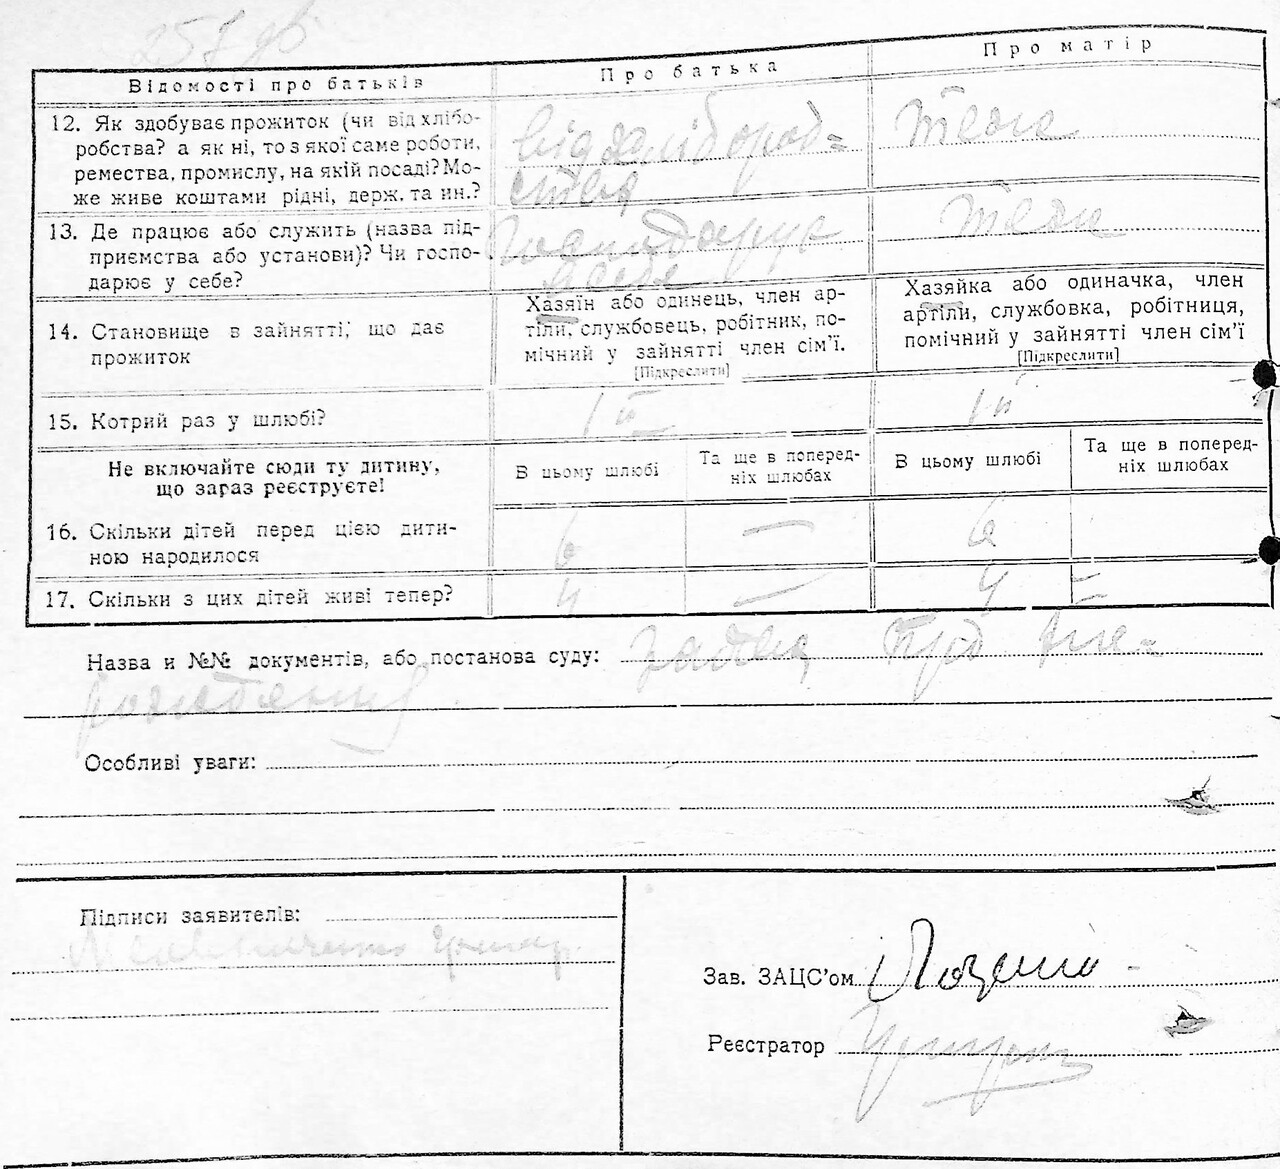 257 зв
Відомості про батьків
Про батька
Про матір
12. Як здобуває прожиток (чи від хлібо-
робства? а як ні, то з якої саме роботи,
ремества, промислу, на якій посаді? Мо-
же живе коштами рідні, держ. та ин.?
від хлібороб=
ства
теж
13. Де працює або служить (назва під-
приємства або установи)? Чи госпо-
дарює у себе?
Господарує
в себе
14. Становище в зайнятті, що дає
прожиток
Хазяїн або одинець, член ар-
тіли, службовець, робітник, по-
мічний у зайнятті член сім’ї.
[Підкреслити]
Хазяйка або одиначка, член
артіли, службовка, робітниця,
помічний у зайнятті член сім’ї
[Підкреслити]
15. Котрий раз у шлюбі?
1й
1й
Не включайте сюди ту дитину,
що зараз реєструєте!
В цьому шлюбі
Та ще в поперед-
ніх шлюбах
В цьому шлюбі
Та ще в поперед-
ніх шлюбах
16. Скільки дітей перед цією дити-
ною народилося
6
—
6
17. Скільки з цих дітей живі тепер?
4
—
4
—
Назва и №№ документів, або постанова суду:
Особливі уваги:
Підписи заявителів:
Зав. ЗАЦС’ом
Реєстратор